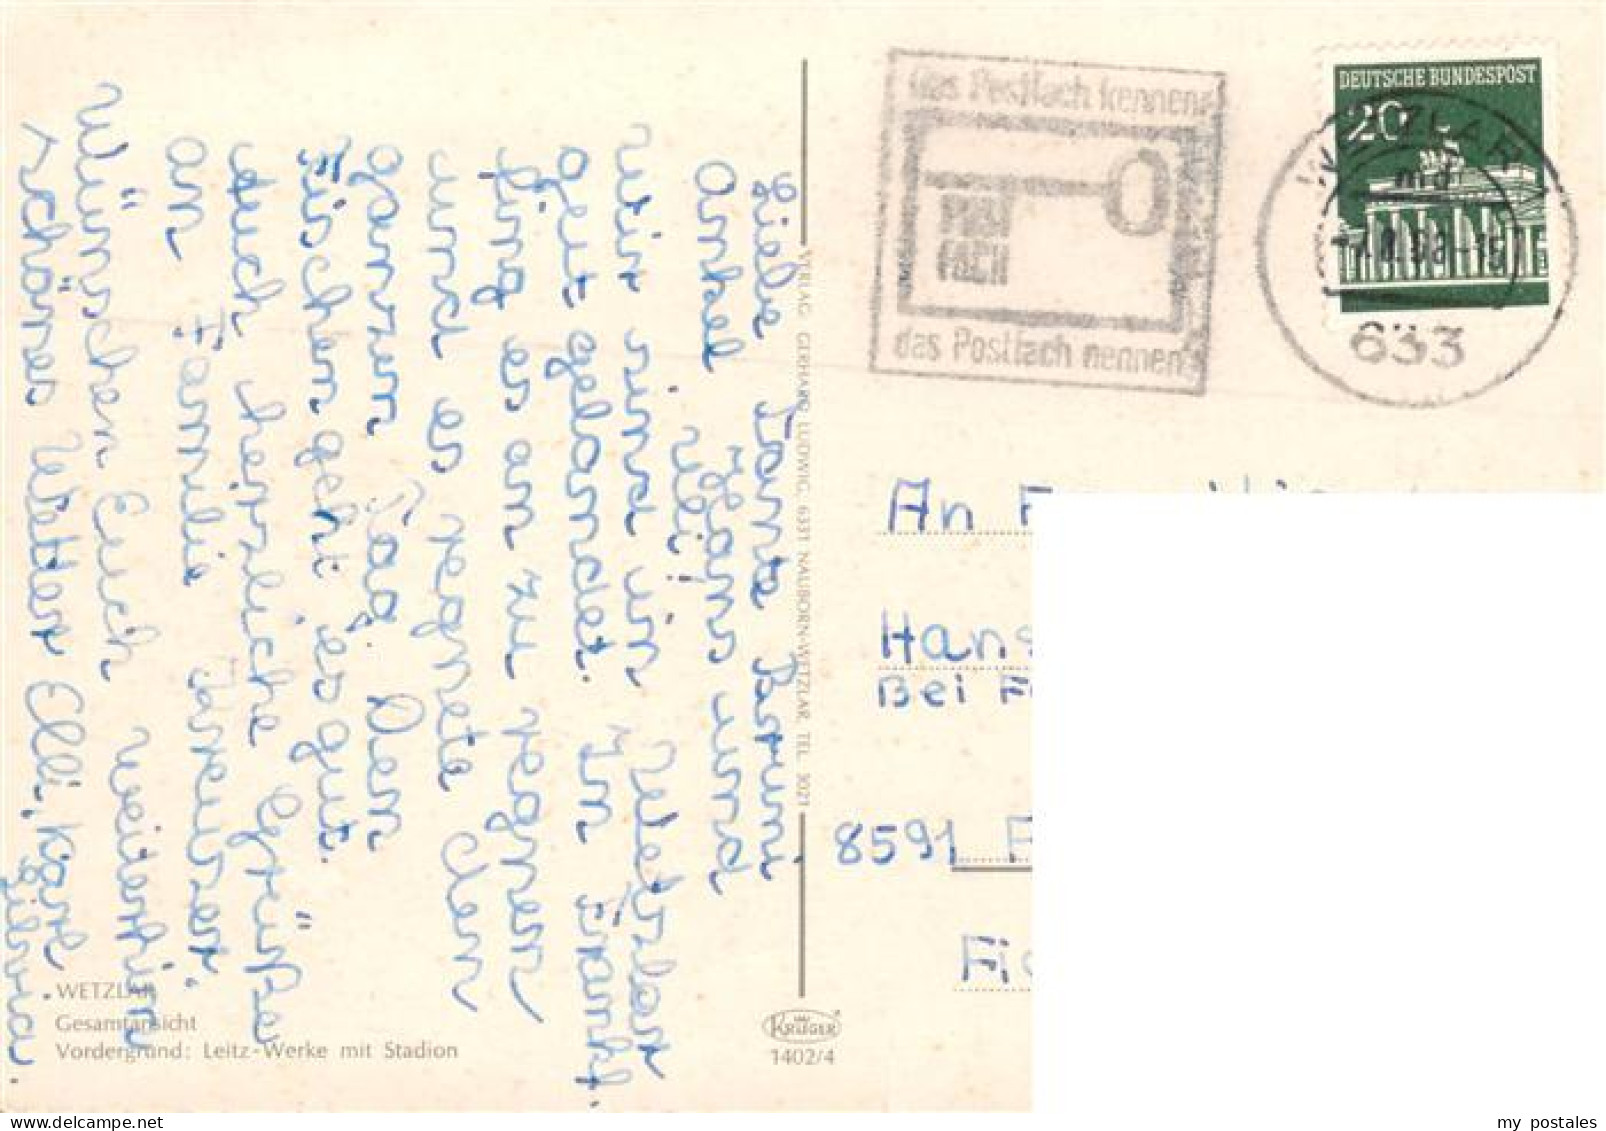 Liebe Tante Paruni
Onkel Hans und
Uli!
Wir sind in Wetzlar
gut gelandet. In Frankf.
fing es an zu regnen
und es regnete den
ganzen Tag. Den
Füschen geht es gut.
Auch herzliche Grüße
an Familie
Wünschen Euch weiterhin
schönes Wetter Elli, Karl
Silvia.
VERLAG GERHARD LUDWIG, 6331 NAUBORN-WETZLAR, TEL. 3021
WETZLAR
Gesamtansicht
Vordergrund: Leitz-Werke mit Stadion
KRÜGER
1402/4
das Postfach kennen
POST
FACH
das Postfach nennen
DEUTSCHE BUNDESPOST
20
WETZLAR
633
An F
Hans
Bei F
8591 F
Fic
my postales